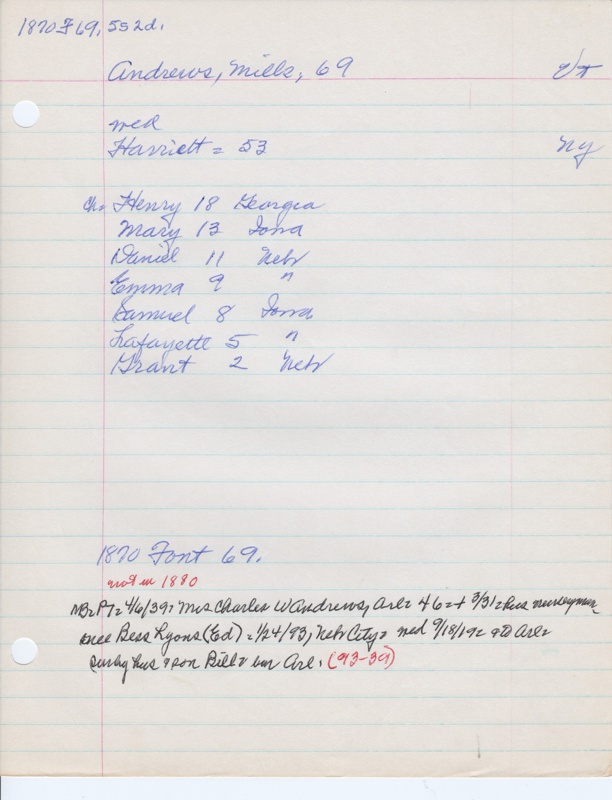 1870 F 69, 552d.
Andrews, Mills, 69 Vt
med
Harriett = 53 Ny
Ch= Henry 18 Georgia
Mary 13 Iowa
Daniel 11 Nebr
Emma 9 "
Samuel 8 Iowa
Lafayette 5 "
Grant 2 Nebr
1870 Font 69.
not in 1880
NB=PT= 4/6/39= Mrs Charles W Andrews, Arl= 46 = + 3/31= hus nurseyman
nee Bess Lyons (Ed) = 1/24/93, Nebr City= med 9/18/19= to Arl=
surv by hus & son Bill= bur Arl. (93-39)